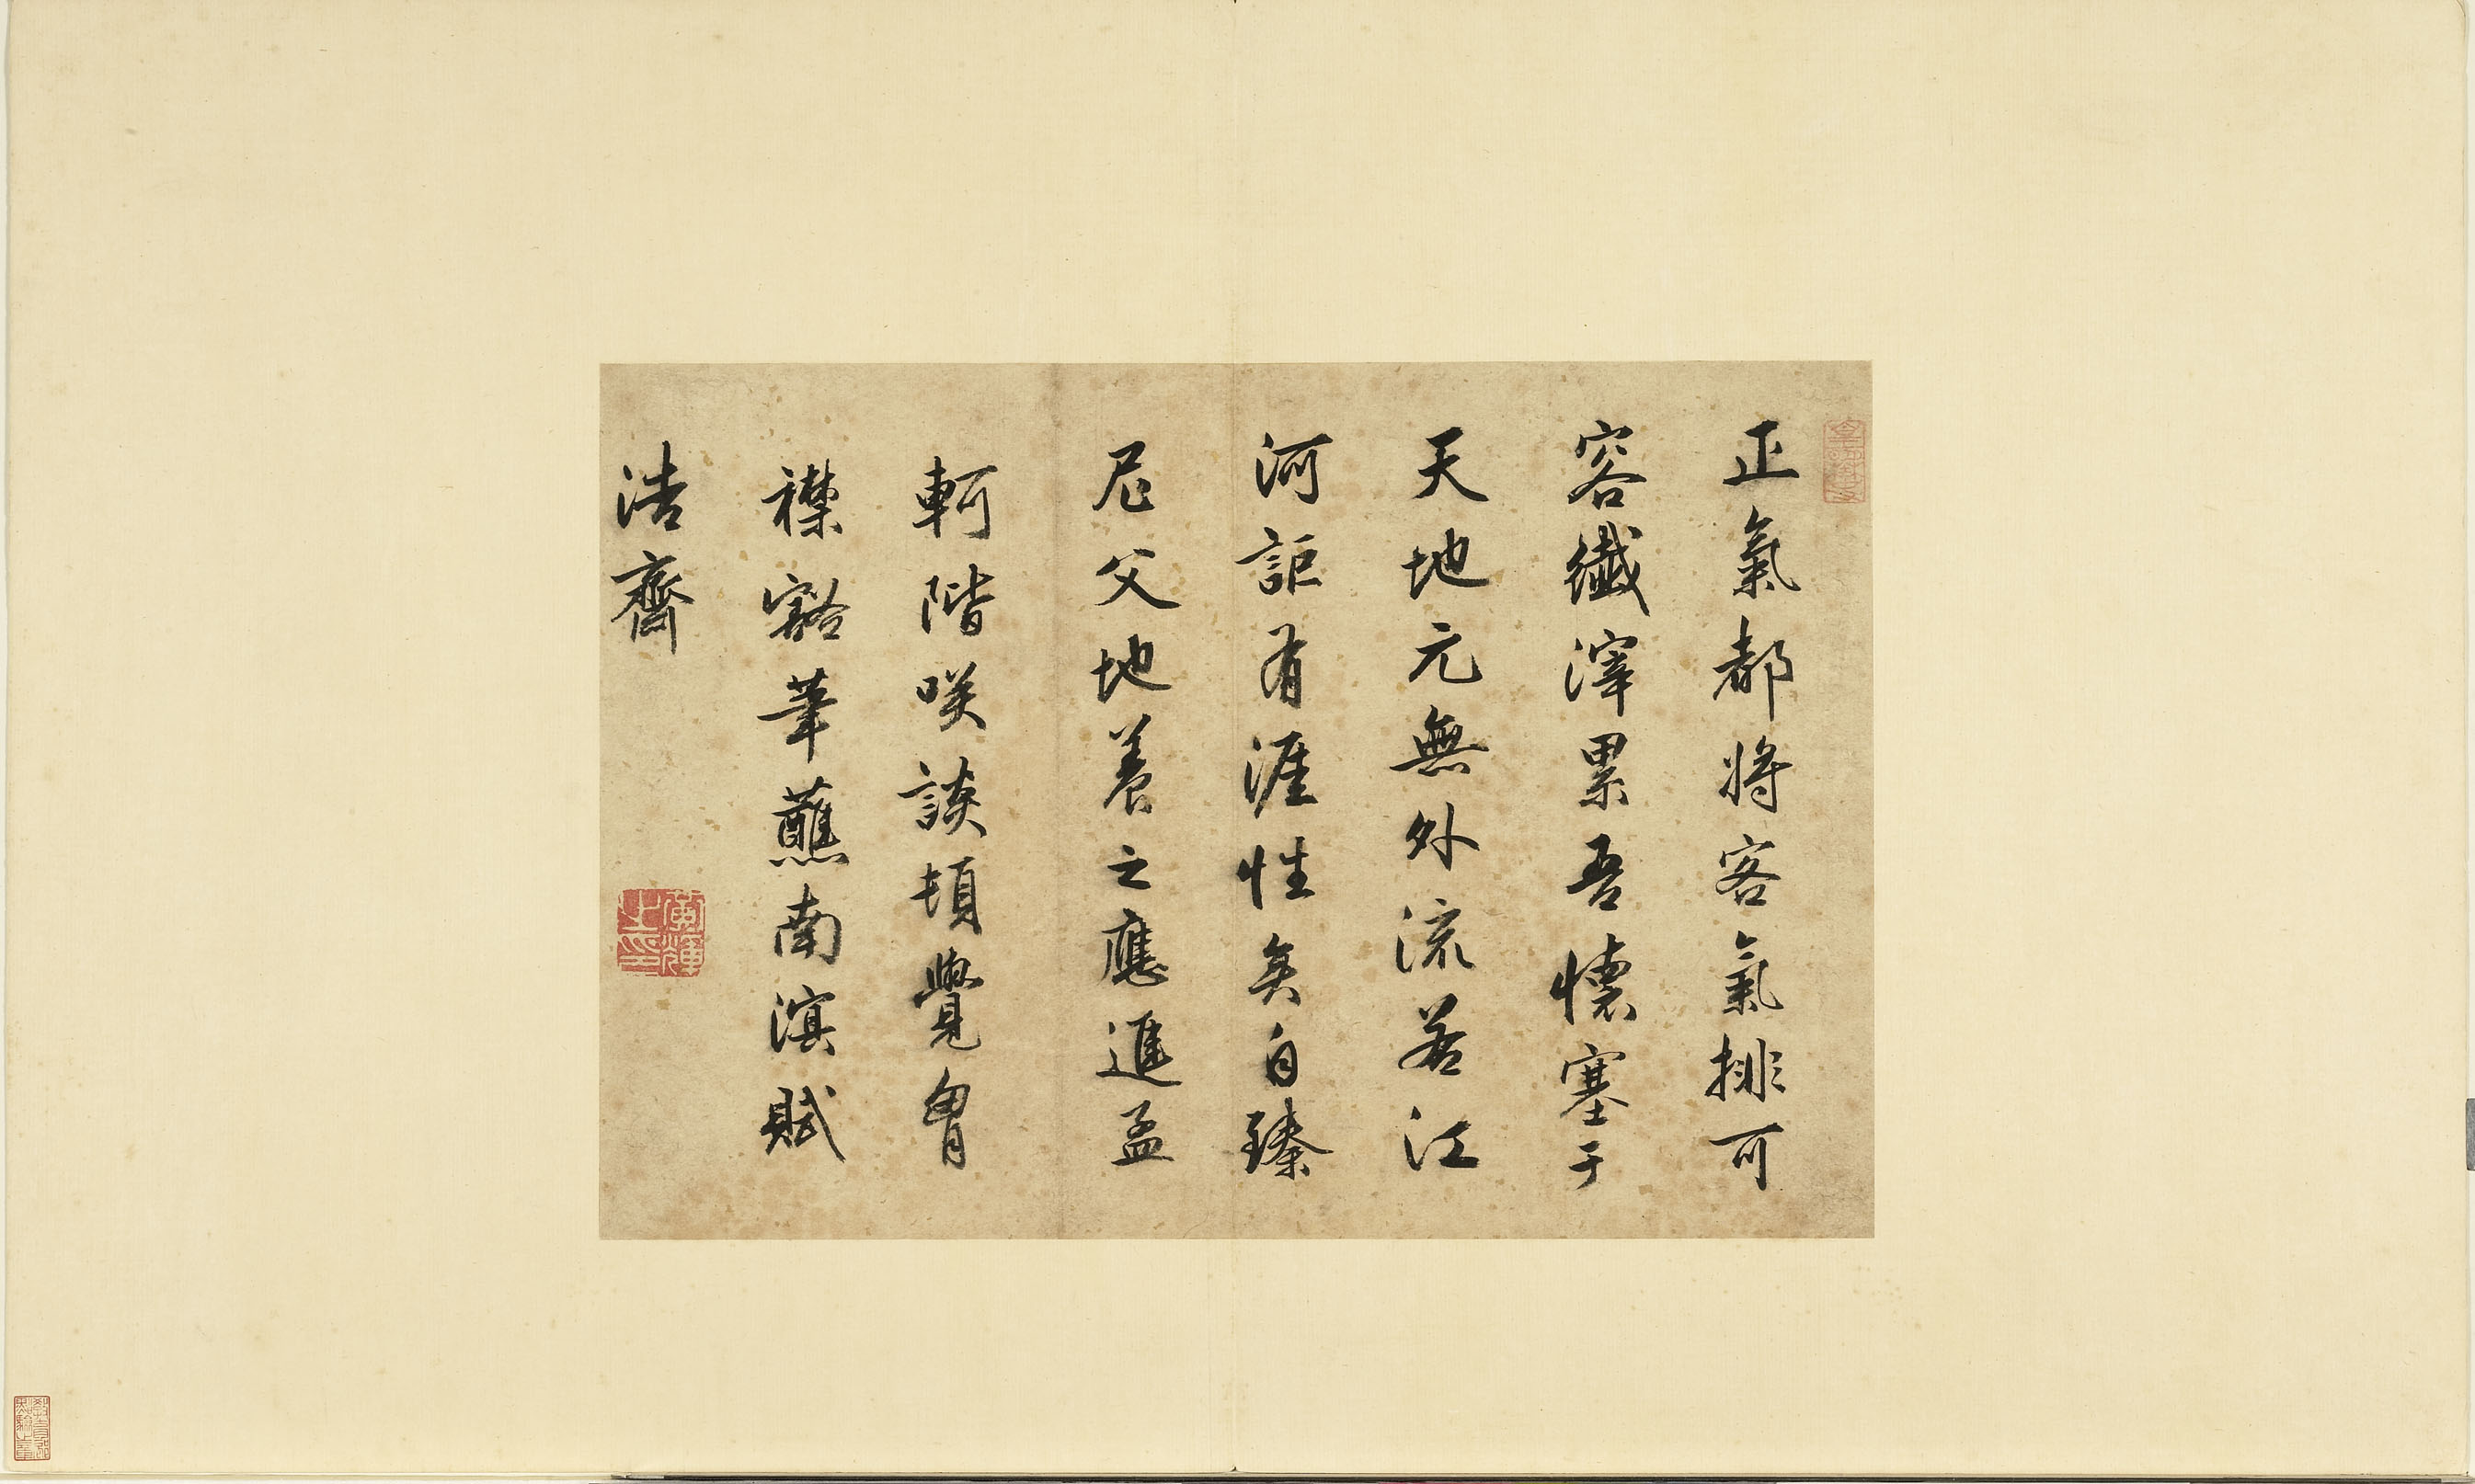 正氣都將客氣排可
容纖滓累吾懷塞于
天地元無外流若江
河詎有涯性矣自臻
尼父地養之應進孟
軻階咲談頓覺胷
襟豁筆蘸南溟賦
浩齊